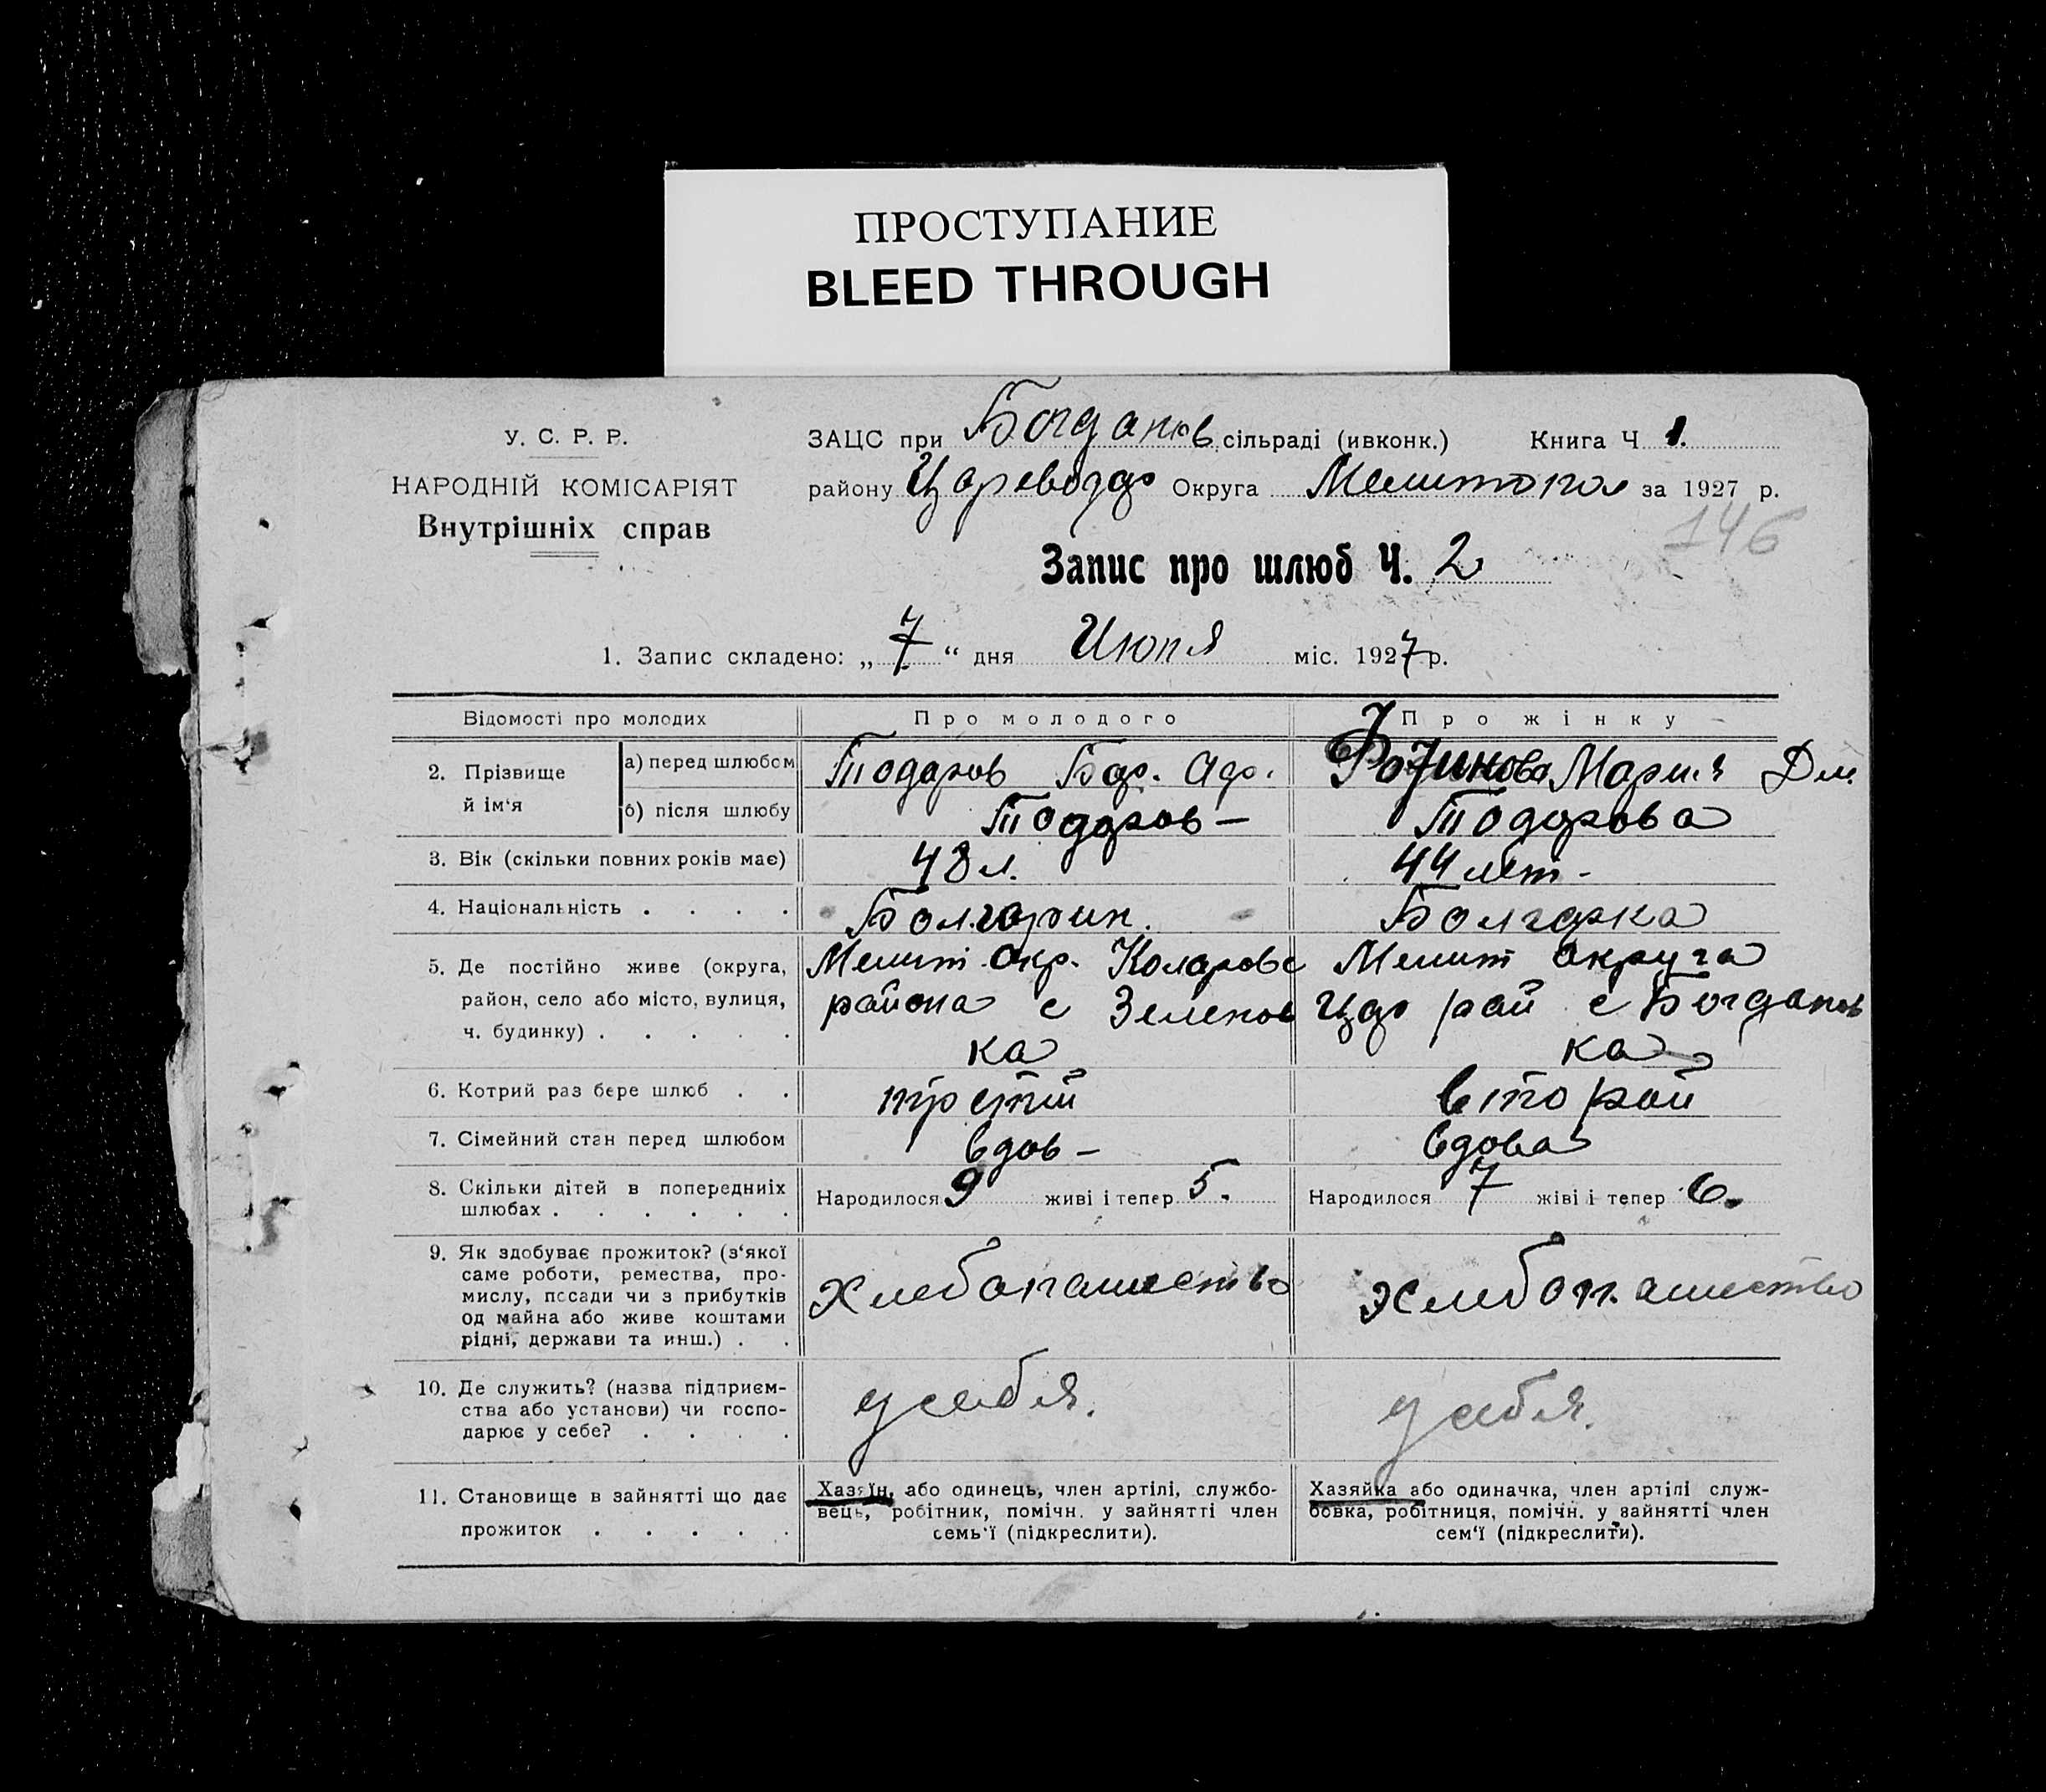 ПРОСТУПАНИЕ
BLEED THROUGH
У. С. Р. Р.
НАРОДНІЙ КОМІСАРІЯТ
Внутрішніх справ
ЗАЦС при Богданов сільраді (ивконк.) Книга Ч 1.
району Цареводар Округа Мелитопол за 1927 р.
146
Запис про шлюб Ч. 2
1. Запис складено: „ 7 “ дня Июля міс. 1927 р.
Відомості про молодих Про молодого Про жінку
2. Прізвище й ім‘я
а) перед шлюбом Тодоров Мария Дм.
б) після шлюбу Тодоров – Тодорова
3. Вік (скільки повних років має) 48 л. 44 лет -
4. Національність . . . . Болгарин. Болгарка
5. Де постійно живе (округа, Мелит. окр. Коларовс Мелит округа
район, село або місто, вулиця, района с Зеленов Цар рай с Богданов
ч. будинку) . . . . . ка ка
6. Котрий раз бере шлюб . . третий второй
7. Сімейний стан перед шлюбом вдов – вдова
8. Скільки дітей в попередниіх Народилося 9 живі і тепер 5. Народилося 7 жіві і тепер 6.
шлюбах . . . . . .
9. Як здобуває прожиток? (з‘якої
саме роботи, ремества, про-
мислу, посади чи з прибутків Хлебопашество Хлебопашество
од майна або живе коштами
рідні, держави та инш.) . .
10. Де служить? (назва підприєм-
ства або установи) чи госпо- у себя. у себя.
дарює у себе? . . . .
11. Становище в зайнятті що дає
прожиток . . . . .
Хазяїн, або одинець, член артілі, службо-
вець, робітник, помічн. у зайнятті член
семь‘ї (підкреслити).
Хазяйка або одиначка, член артілі служ-
бовка, робітниця, помічн. у зайнятті член
сем‘ї (підкреслити).